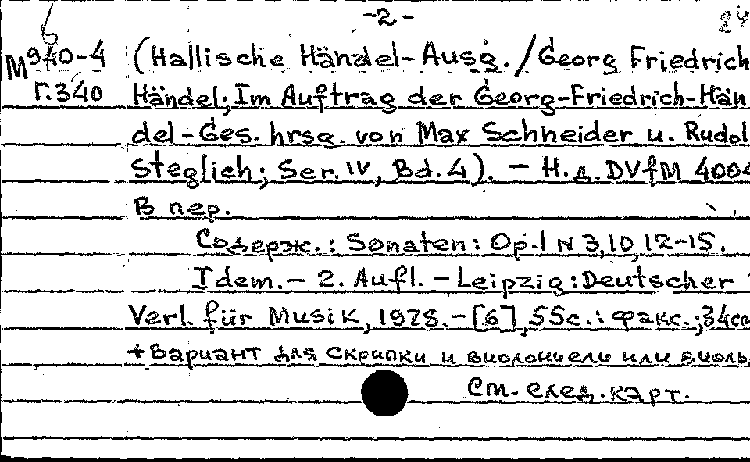 -2-
24
М940-4 (Hallische Händel-Ausg. / Georg Friedrich
Г.340 Händel; Im Auftrag der Georg-Friedrich-Hän
del-Ges. hrsg. von Max Schneider u. Rudol
Steglich; Ser. IV, Bd. 4). — Н.д. DVfM 400
В пер.
Содерж.: Sonaten: Op. 1 N 3, 10, 12-15.
Idem. — 2. Aufl. — Leipzig: Deutscher
Verl. für Musik, 1978. — [6], 55с.: факс.; 34см
+ Вариант для скрипки и виолончели или виолы
См. след. карт.